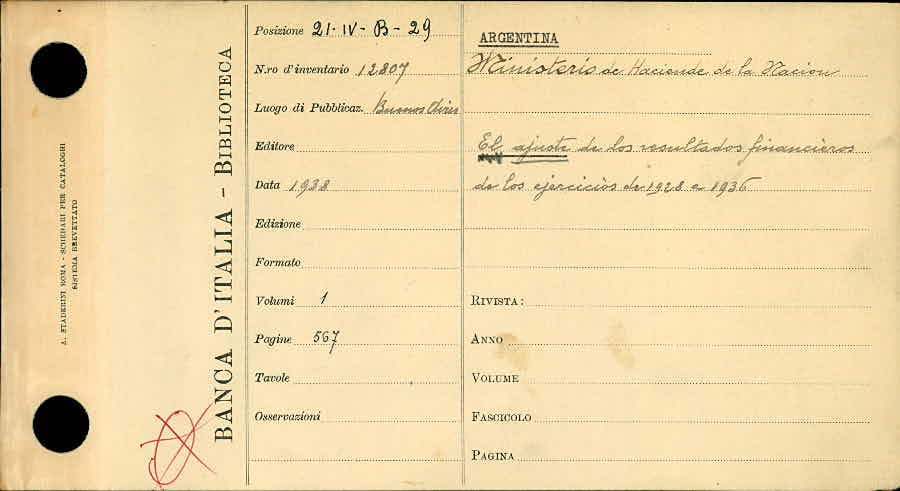 A. STADERINI ROMA - SCHEDARI PER CATALOGHI
SISTEMA BREVETTATO
BANCA D'ITALIA - BIBLIOTECA
Posizione 21-IV-B-29
N.ro d'inventario 12807
Luogo di Pubblicaz. Buenos Aires
Editore
Data 1938
Edizione
Formato
Volumi 1
Pagine 567
Tavole
Osservazioni
ARGENTINA
Ministerio de Haciende de la Nacion
El ajuste de los resultados financieros
de los ejercicios de 1928 a 1936
RIVISTA:
ANNO
VOLUME
FASCICOLO
PAGINA